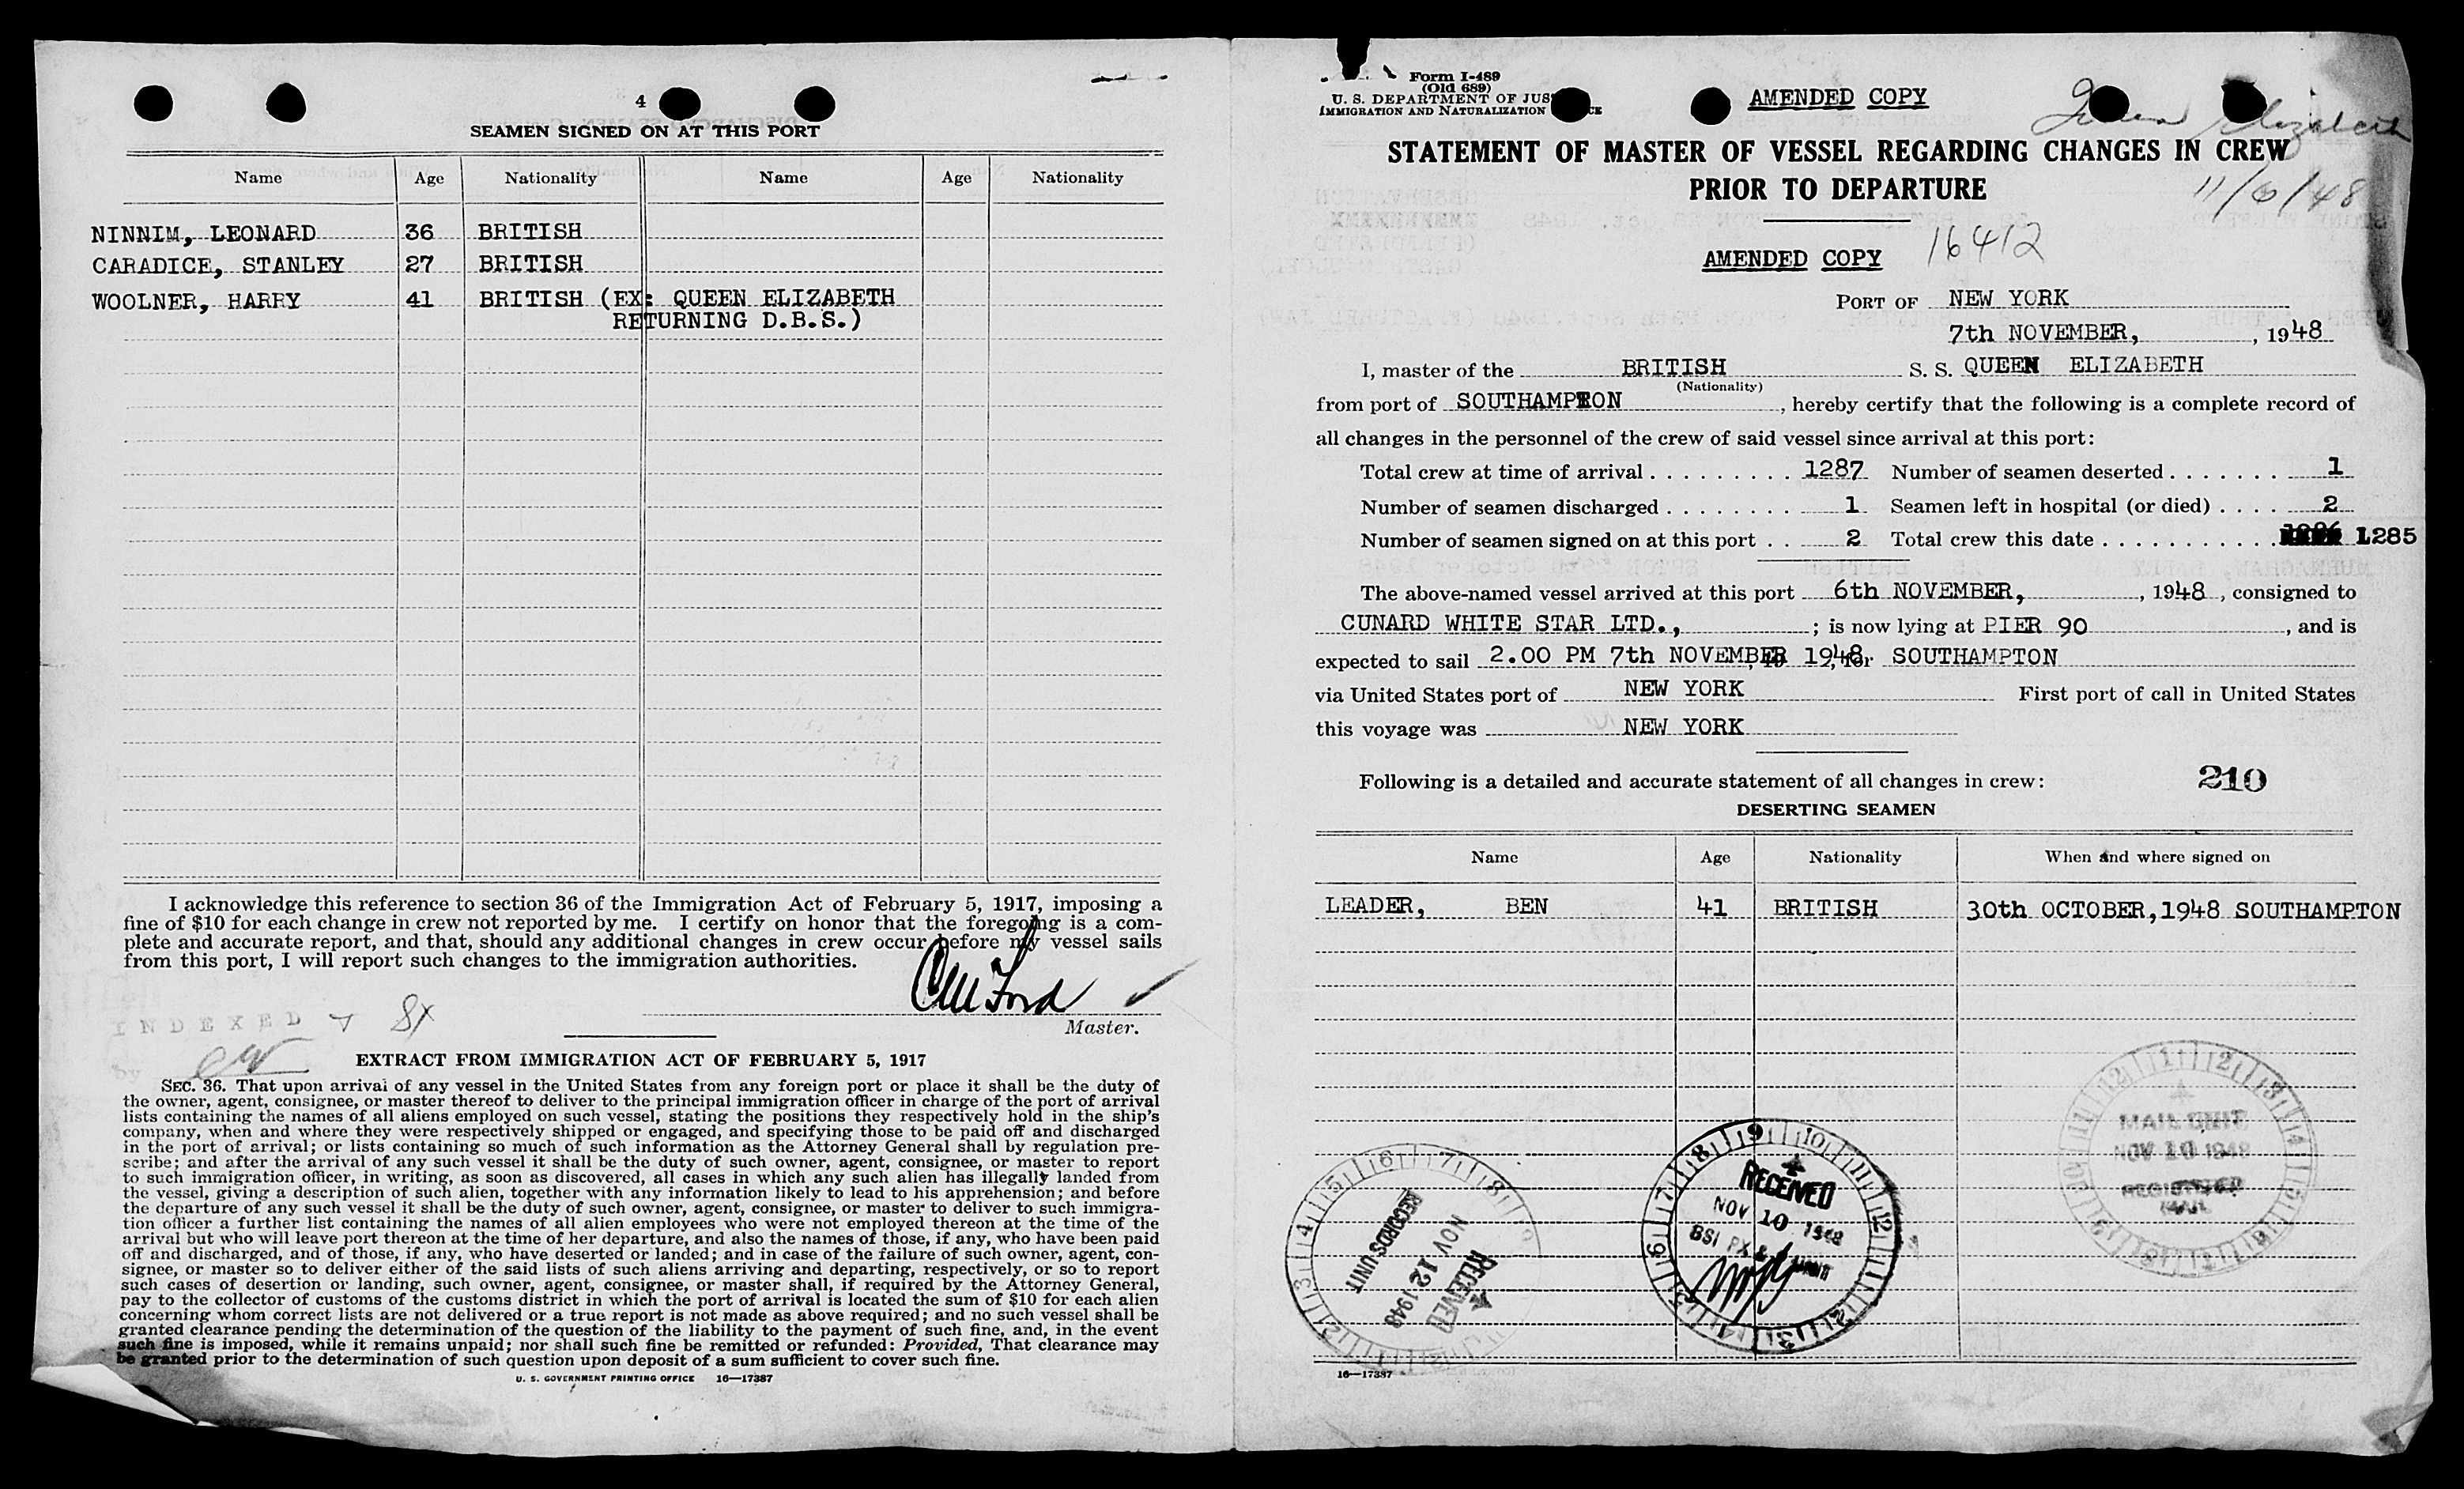 4
SEAMEN SIGNED ON AT THIS PORT
Name Age Nationality Name Age Nationality
NINNIM, LEONARD 36 BRITISH
CARADICE, STANLEY 27 BRITISH
WOOLNER, HARRY 41 BRITISH (EX: QUEEN ELIZABETH
RETURNING D.B.S.)
I acknowledge this reference to section 36 of the Immigration Act of February 5, 1917, imposing a
fine of $10 for each change in crew not reported by me. I certify on honor that the foregoing is a com-
plete and accurate report, and that, should any additional changes in crew occur before my vessel sails
from this port, I will report such changes to the immigration authorities.
Master.
INDEXED
by
EXTRACT FROM IMMIGRATION ACT OF FEBRUARY 5, 1917
SEC. 36. That upon arrival of any vessel in the United States from any foreign port or place it shall be the duty of
the owner, agent, consignee, or master thereof to deliver to the principal immigration officer in charge of the port of arrival
lists containing the names of all aliens employed on such vessel, stating the positions they respectively hold in the ship's
company, when and where they were respectively shipped or engaged, and specifying those to be paid off and discharged
in the port of arrival; or lists containing so much of such information as the Attorney General shall by regulation pre-
scribe; and after the arrival of any such vessel it shall be the duty of such owner, agent, consignee, or master to report
to such immigration officer, in writing, as soon as discovered, all cases in which any such alien has illegally landed from
the vessel, giving a description of such alien, together with any information likely to lead to his apprehension; and before
the departure of any such vessel it shall be the duty of such owner, agent, consignee, or master to deliver to such immigra-
tion officer a further list containing the names of all alien employees who were not employed thereon at the time of the
arrival but who will leave port thereon at the time of her departure, and also the names of those, if any, who have been paid
off and discharged, and of those, if any, who have deserted or landed; and in case of the failure of such owner, agent, con-
signee, or master so to deliver either of the said lists of such aliens arriving and departing, respectively, or so to report
such cases of desertion or landing, such owner, agent, consignee, or master shall, if required by the Attorney General,
pay to the collector of customs of the customs district in which the port of arrival is located the sum of $10 for each alien
concerning whom correct lists are not delivered or a true report is not made as above required; and no such vessel shall be
granted clearance pending the determination of the question of the liability to the payment of such fine, and, in the event
such fine is imposed, while it remains unpaid; nor shall such fine be remitted or refunded: Provided, That clearance may
be granted prior to the determination of such question upon deposit of a sum sufficient to cover such fine.
U. S. GOVERNMENT PRINTING OFFICE 16—17387
Form I-489
(Old 689)
U. S. DEPARTMENT OF JUS
IMMIGRATION AND NATURALIZATION CE
AMENDED COPY
Queen Elizabeth
STATEMENT OF MASTER OF VESSEL REGARDING CHANGES IN CREW
PRIOR TO DEPARTURE
11/6/48
AMENDED COPY 16412
PORT OF NEW YORK
7th NOVEMBER, , 1948
I, master of the BRITISH S. S. QUEEN ELIZABETH
(Nationality)
from port of SOUTHAMPTON , hereby certify that the following is a complete record of
all changes in the personnel of the crew of said vessel since arrival at this port:
Total crew at time of arrival . . . . . . . . . 1287 Number of seamen deserted . . . . . . . 1
Number of seamen discharged . . . . . . . . 1 Seamen left in hospital (or died) . . . . 2
Number of seamen signed on at this port . . 2 Total crew this date . . . . . . . . . . . 1285
The above-named vessel arrived at this port 6th NOVEMBER, , 1948 , consigned to
CUNARD WHITE STAR LTD., ; is now lying at PIER 90 , and is
expected to sail 2.00 PM 7th NOVEMBER 1948, for SOUTHAMPTON
via United States port of NEW YORK First port of call in United States
this voyage was NEW YORK
Following is a detailed and accurate statement of all changes in crew: 210
DESERTING SEAMEN
Name Age Nationality When and where signed on
LEADER, BEN 41 BRITISH 30th OCTOBER,1948 SOUTHAMPTON
RECORDS UNIT
NOV 12 1948
RECEIVED
RECEIVED
NOV 10 1948
BSI PX & UNIT
MAIL UNIT
NOV 10 1948
REGISTERED
MAIL
16—17387